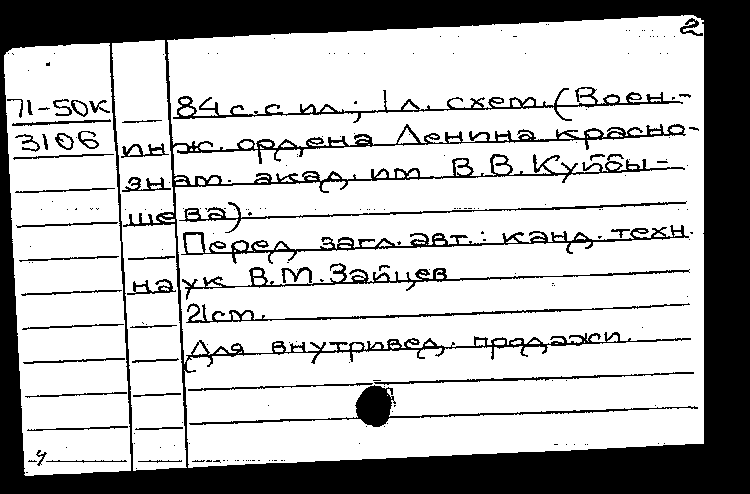 2
71-50к 84 с. с ил.; 1 л. схем. (Воен.-
3106 инж. ордена Ленина красно-
знам. акад. им. В.В.Куйбы-
шева).
Перед загл. авт.: канд. техн.
наук В.М.Зайцев
21 см.
Для внутривед. продажи.